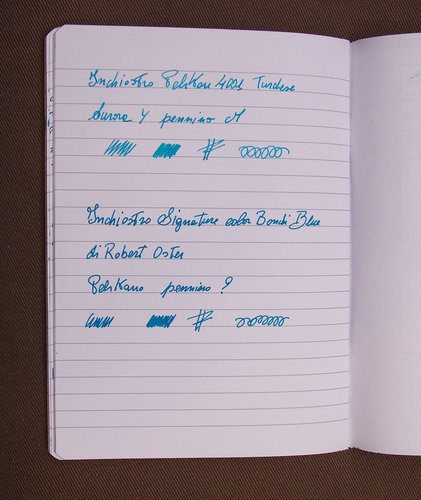 Inchiostro Pelikan 4001 Turchese
Aurora Y pennino M
Inchiostro Signature color Bondi Blue
di Robert Oster
Pelikano pennino ?